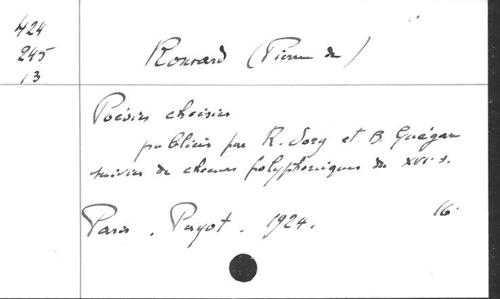 424
245
13
Ronsard (Pierre de)
Poésies choisies
publiées par R. Sorg et B. Guégan
suivies de chœurs polyphoniques du XVI. s.
Paris. Payot. 1924. 16